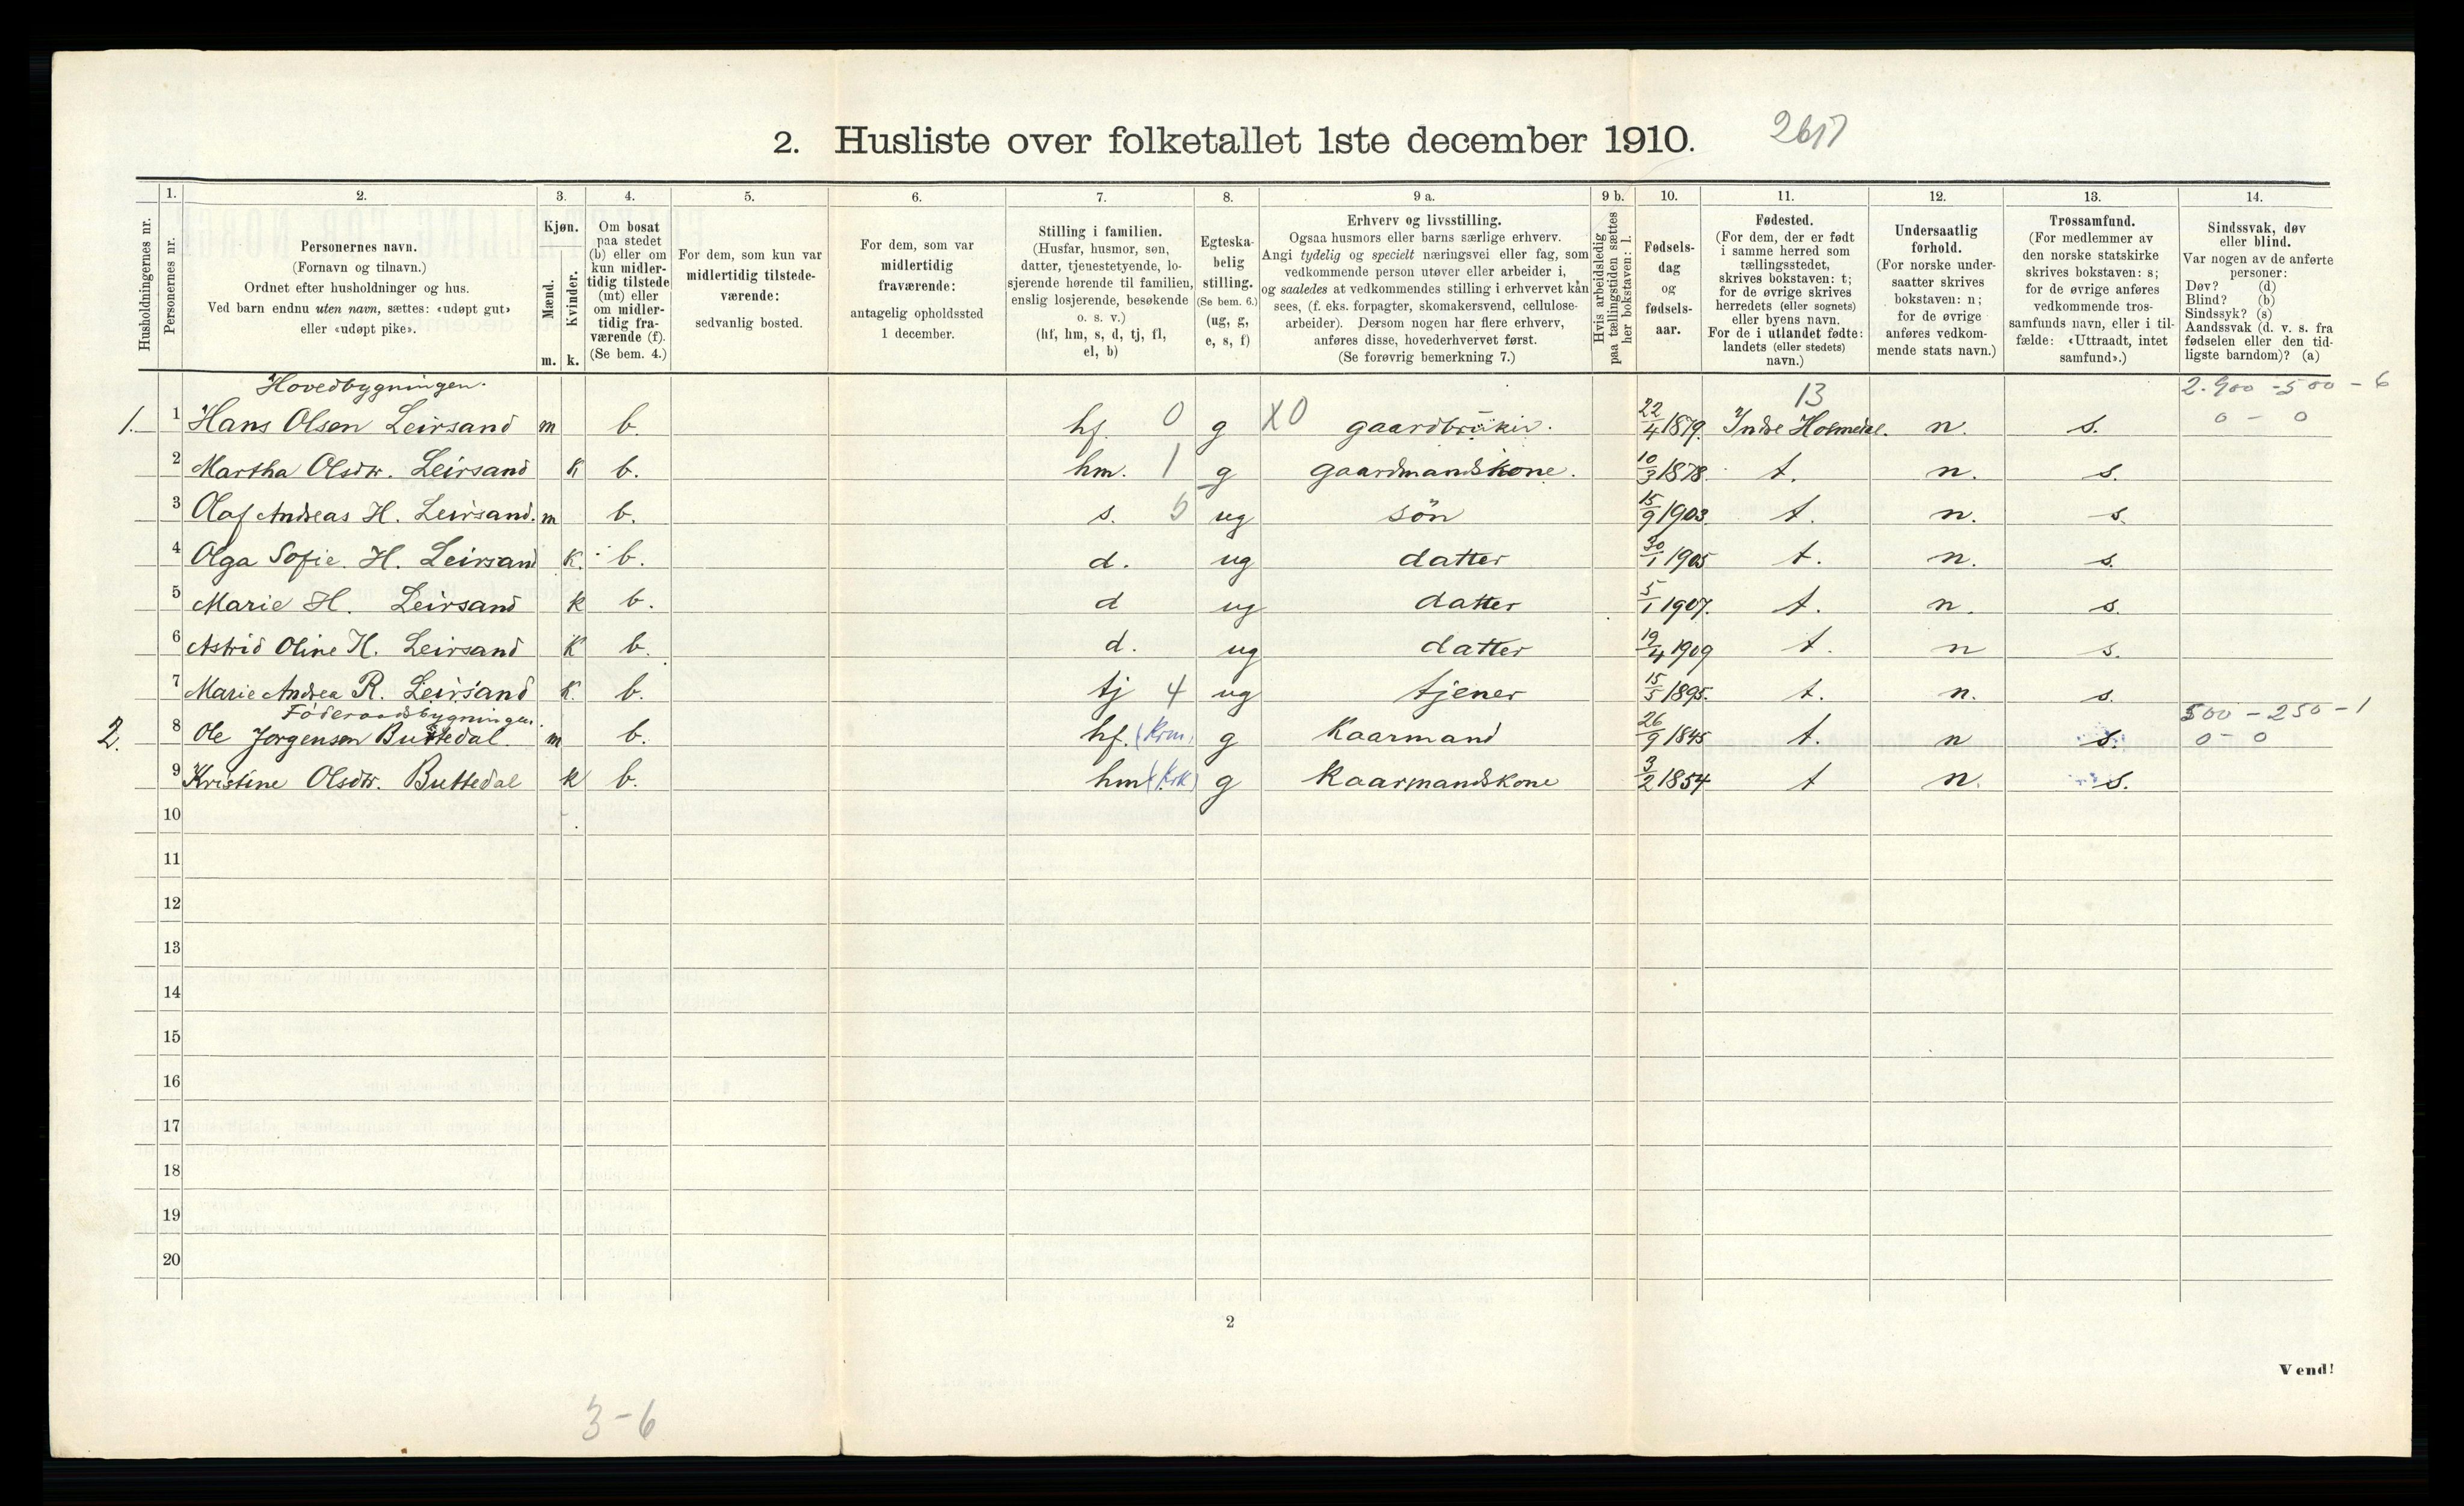 2. Husliste over folketallet 1ste december 1910. 2617
Husholdningernes nr.
1. Personernes nr.
2. Personernes navn. (Fornavn og tilnavn.) Ordnet efter husholdninger og hus. Ved barn endnu uten navn, sættes: «udøpt gut» eller «udøpt pike».
3. Kjøn. Mænd. m. Kvinder. k.
4. Om bosat paa stedet (b) eller om kun midlertidig tilstede (mt) eller om midlertidig fraværende (f). (Se bem. 4.)
5. For dem, som kun var midlertidig tilstedeværende: sedvanlig bosted.
6. For dem, som var midlertidig fraværende: antagelig opholdssted 1 december.
7. Stilling i familien. (Husfar, husmor, søn, datter, tjenestetyende, losjerende hørende til familien, enslig losjerende, besøkende o. s. v.) (hf, hm, s, d, tj, fl, el, b)
8. Egteskabelig stilling. (Se bem. 6.) (ug, g, e, s, f)
9 a. Erhverv og livsstilling. Ogsaa husmors eller barns særlige erhverv. Angi tydelig og specielt næringsvei eller fag, som vedkommende person utøver eller arbeider i, og saaledes at vedkommendes stilling i erhvervet kan sees, (f. eks. forpagter, skomakersvend, cellulosearbeider). Dersom nogen har flere erhverv, anføres disse, hovederhvervet først. (Se forøvrig bemerkning 7.)
9 b. Hvis arbeidsledig paa tællingstiden sættes her bokstaven: l.
10. Fødselsdag og fødselsaar.
11. Fødested. (For dem, der er født i samme herred som tællingsstedet, skrives bokstaven: t; for de øvrige skrives herredets (eller sognets) eller byens navn. For de i utlandet fødte: landets (eller stedets) navn.)
12. Undersaatlig forhold. (For norske undersaatter skrives bokstaven: n; for de øvrige anføres vedkommende stats navn.)
13. Trossamfund. (For medlemmer av den norske statskirke skrives bokstaven: s; for de øvrige anføres vedkommende trossamfunds navn, eller i tilfælde: «Uttraadt, intet samfund».)
14. Sindssvak, døv eller blind. Var nogen av de anførte personer: Døv? (d) Blind? (b) Sindssyk? (s) Aandssvak (d. v. s. fra fødselen eller den tidligste barndom)? (a)
Hovedbygningen. 13 2.900 - 500 - 6
1. 1 Hans Olsen Leirsand m b. hf. 0 g X0 gaardbrüker. 22/4 1879. Indre Holmedal. n. s. 0 - 0
2 Martha Olsdtr. Leirsand k b. hm. 1 g gaardmandskone. 10/3 1878. t. n. s.
3 Olaf Andreas H. Leirsand. m b. s. 5 ug sön 15/9 1903. t. n. s.
4 Olga Sofie. H. Leirsand k. b. d. ug datter 30/1 1905 t. n. s.
5 Marie H. Leirsand k b. d ug datter 5/1 1907. t. n. s.
6 Astrid Oline H. Leirsand k b. d. ug datter 19/4 1909 t. n s.
7 Marie Andrea R. Leirsand k. b. tj 4 ug tjener 15/5 1895. t. n. s.
Föderaadsbygningen. 500 - 250 - 1
2. 8 Ole Jorgensen Buttedal. m b. hf. (Krm) g Kaarmand 26/9 1845 t. n s. 0 - 0
9 Kristine Olsdtr. Buttedal k b. hm (Krk) g Kaarmandskone 3/2 1854 t n. s.
10
11
12
13
14
15
16
17
18
19
20
2
Vend!
3-6